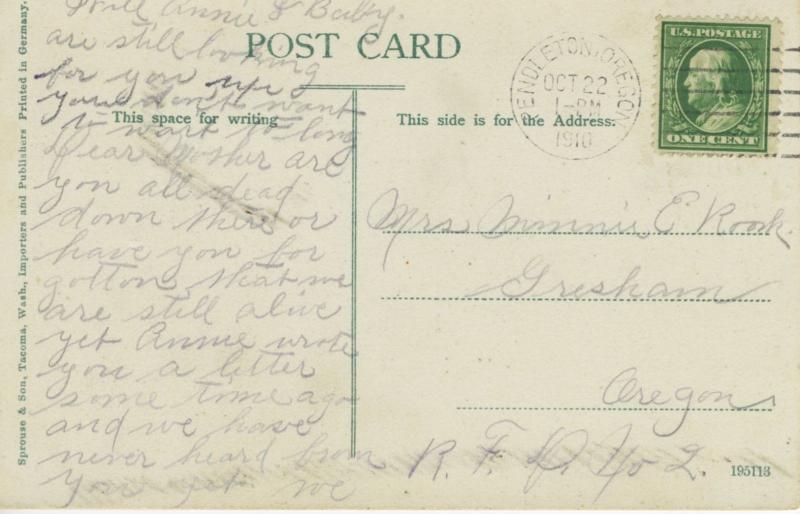 Will Annie & Baby.
are still looking
for you up
you don't want
to wait to long
Dear Mother are
you all dead
down there or
have you for
gotton that we
are still alive
yet Annie wrote
you a letter
some time ago
and we have
never heard from
you yet we
POST CARD
This space for writing
This side is for the Address.
PENDLETON, OREGON
OCT 22
1-PM
1910
U.S. POSTAGE
ONE CENT
Mrs Minnie E Rook.
Gresham
Oregon
R. F. D. No 2.
195113
Sprouse & Son, Tacoma, Wash., Importers and Publishers Printed in Germany.